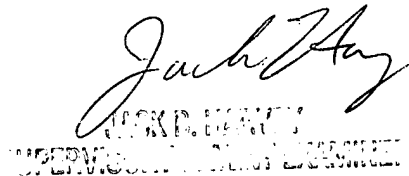 Jack Har
JACK B. HARVEY
SUPERVISORY PATENT EXAMINER